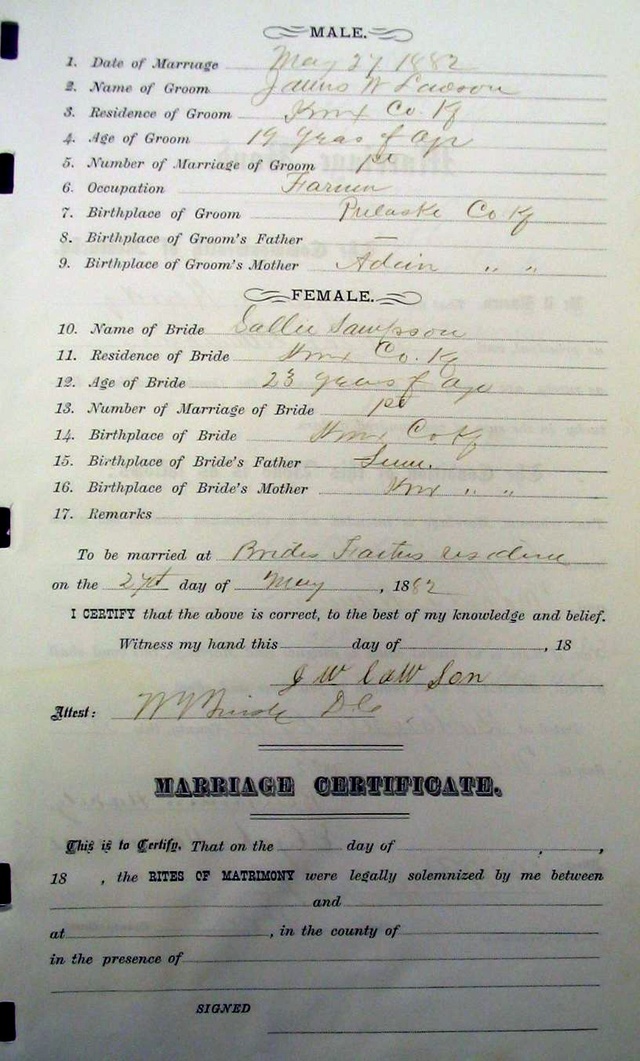 MALE.
1. Date of Marriage May 27 1882
2. Name of Groom James W Lawson
3. Residence of Groom Knox Co. Ky
4. Age of Groom 19 years of age
5. Number of Marriage of Groom 1st
6. Occupation Farmer
7. Birthplace of Groom Pulaski Co. Ky
8. Birthplace of Groom's Father —
9. Birthplace of Groom's Mother " "
FEMALE.
10. Name of Bride Sallie Sampson
11. Residence of Bride Knox Co. Ky
12. Age of Bride 23 years of age
13. Number of Marriage of Bride 1st
14. Birthplace of Bride Knox Co Ky
15. Birthplace of Bride's Father Tenn.
16. Birthplace of Bride's Mother Knox " "
17. Remarks
To be married at Brides residence
on the day of May, 1882
I CERTIFY that the above is correct, to the best of my knowledge and belief.
Witness my hand this day of , 18
J W LaW Son
Attest: D.C.
MARRIAGE CERTIFICATE.
This is to Certify. That on the day of , ,
18 , the RITES OF MATRIMONY were legally solemnized by me between
and
at , in the county of
in the presence of
SIGNED